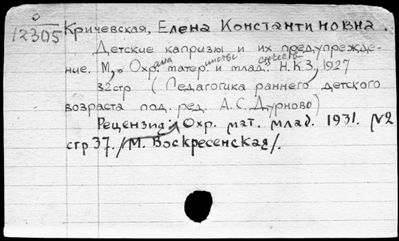 0
12305 Кричевская, Елена Константиновна.
Детские капризы и их предупрежде-
ние. М., Охрана матер.инства и млад.енчества Н.К.З, 1927
32стр (Педагогика раннего детского
возраста под. ред. А.С.Дурново)
Рецензия: Охр. мат. млад. 1931. №2
стр 37. /М. Воскресенская/.